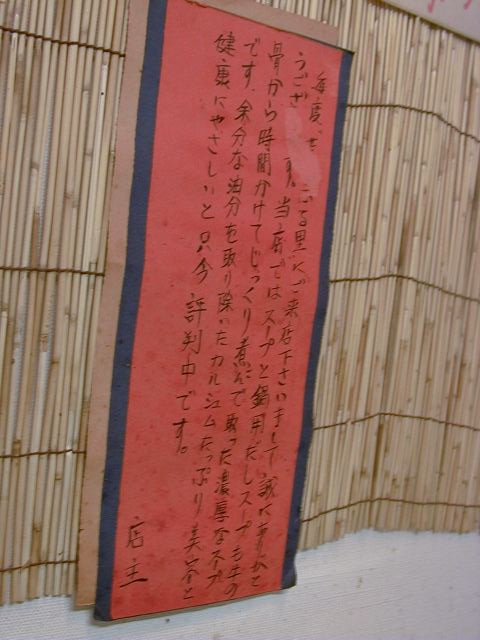 毎度、
る里にご来店下さいまして誠にありがと
うござ す。当店ではスープと鍋用だしスープも牛の
骨から時間かけてじっくり煮んで取った濃厚なスープ
です。余分な油分を取り除いたカルシュムたっぷり美容と
健康にやさしいと只今評判中です。
店主